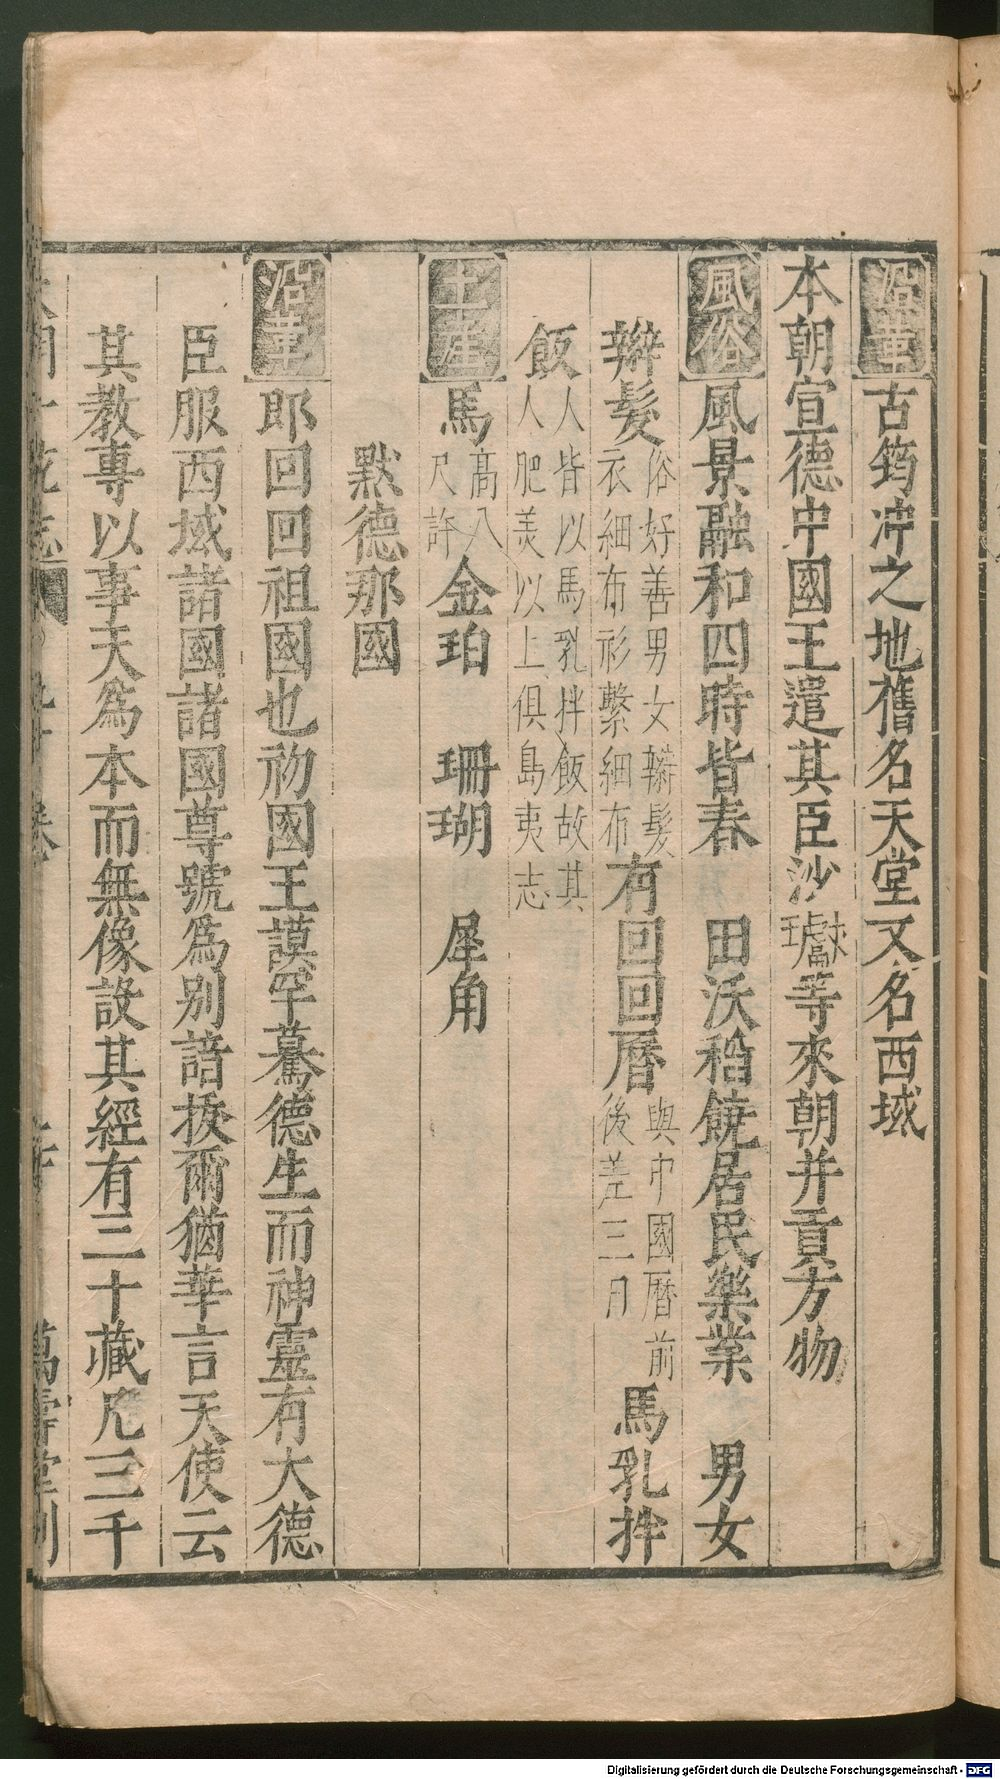 沿革古筠冲之地舊名天堂又名西域
本朝宣德中國王遣其臣沙瓛等來朝并貢方物
風俗風景融和四時皆春 田沃稻饒居民樂業 男女
辮髮俗好善男女辮髮衣細布衫繫細布有回回曆與中國曆前後差三日 馬乳拌
飯人皆以馬乳拌飯故其人肥美以上俱島夷志
土產馬高八尺許金珀 珊瑚 犀角
默德那國
沿革郎回回祖國也初國王謨罕驀德生而神靈有大德
臣服西域諸國諸國尊號為别諳拔爾猶華言天使云
其教專以事天為本而無像設其經有三十藏凡三千
萬壽堂刊
Digitalisierung gefördert durch die Deutsche Forschungsgemeinschaft - DFG